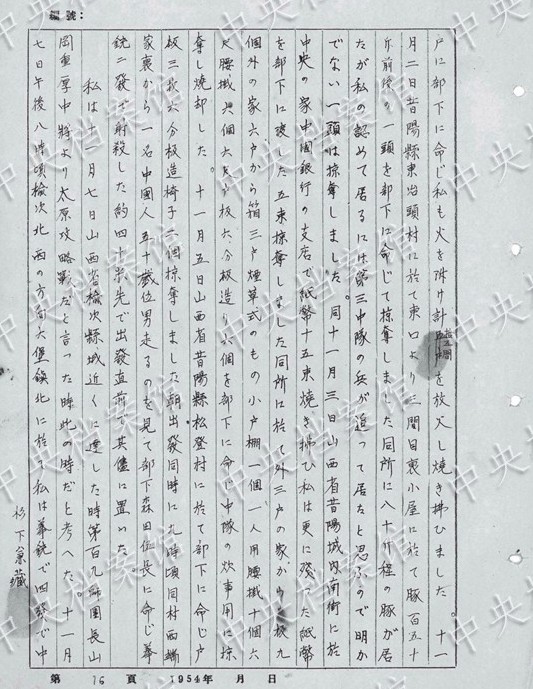 編號：
戸に部下に命じ私も火を附け計 を放火し焼き拂ひました 。十一
月二日昔陽縣東冶頭村に於て東口より三間目裏小屋に於て豚百五十
斤前後の一頭を部下に命じて掠奪しました同所に八十斤程の豚が居
たが私の認めて居るには第三中隊の兵が追って居たと思ふので明か
でない一頭は掠奪しました。同十一月三日山西省昔陽城内南街に於
中央の家中國銀行の支店で紙幣十五束焼き拂ひ私は更に残った紙幣
を部下に 五束掠奪しました同所に於て外三戸の家から 板九
個外の家六戸から箱三戸煙草式のもの小戸棚一個一人用腰掛十個六
尺腰掛 個六尺戸板六分板造り 個を部下に命じ中隊の炊事用に掠
奪し焼却した。十一月五日山西省昔陽縣松登村に於て部下に命じ戸
板三枚六分板造椅子 個掠奪しました朝出發同時に九時頃同村西端
家裏から一名中國人五十歳位男走るのを見て部下森田伍長に命じ拳
銃二發で射殺した約四十米先で出發直前で其儘に置いた。
私は十一月七日山西省楡次縣城近くに達した時第百九師團長山
岡重厚中將より太原攻略戰だと言った時此の時だと考へた。十一月
七日午後八時頃楡次北西の方向大堡鎮北に於て私は拳銃で四發で中
杉下兼蔵
第 16 頁 1954年 月 日
中央档案馆